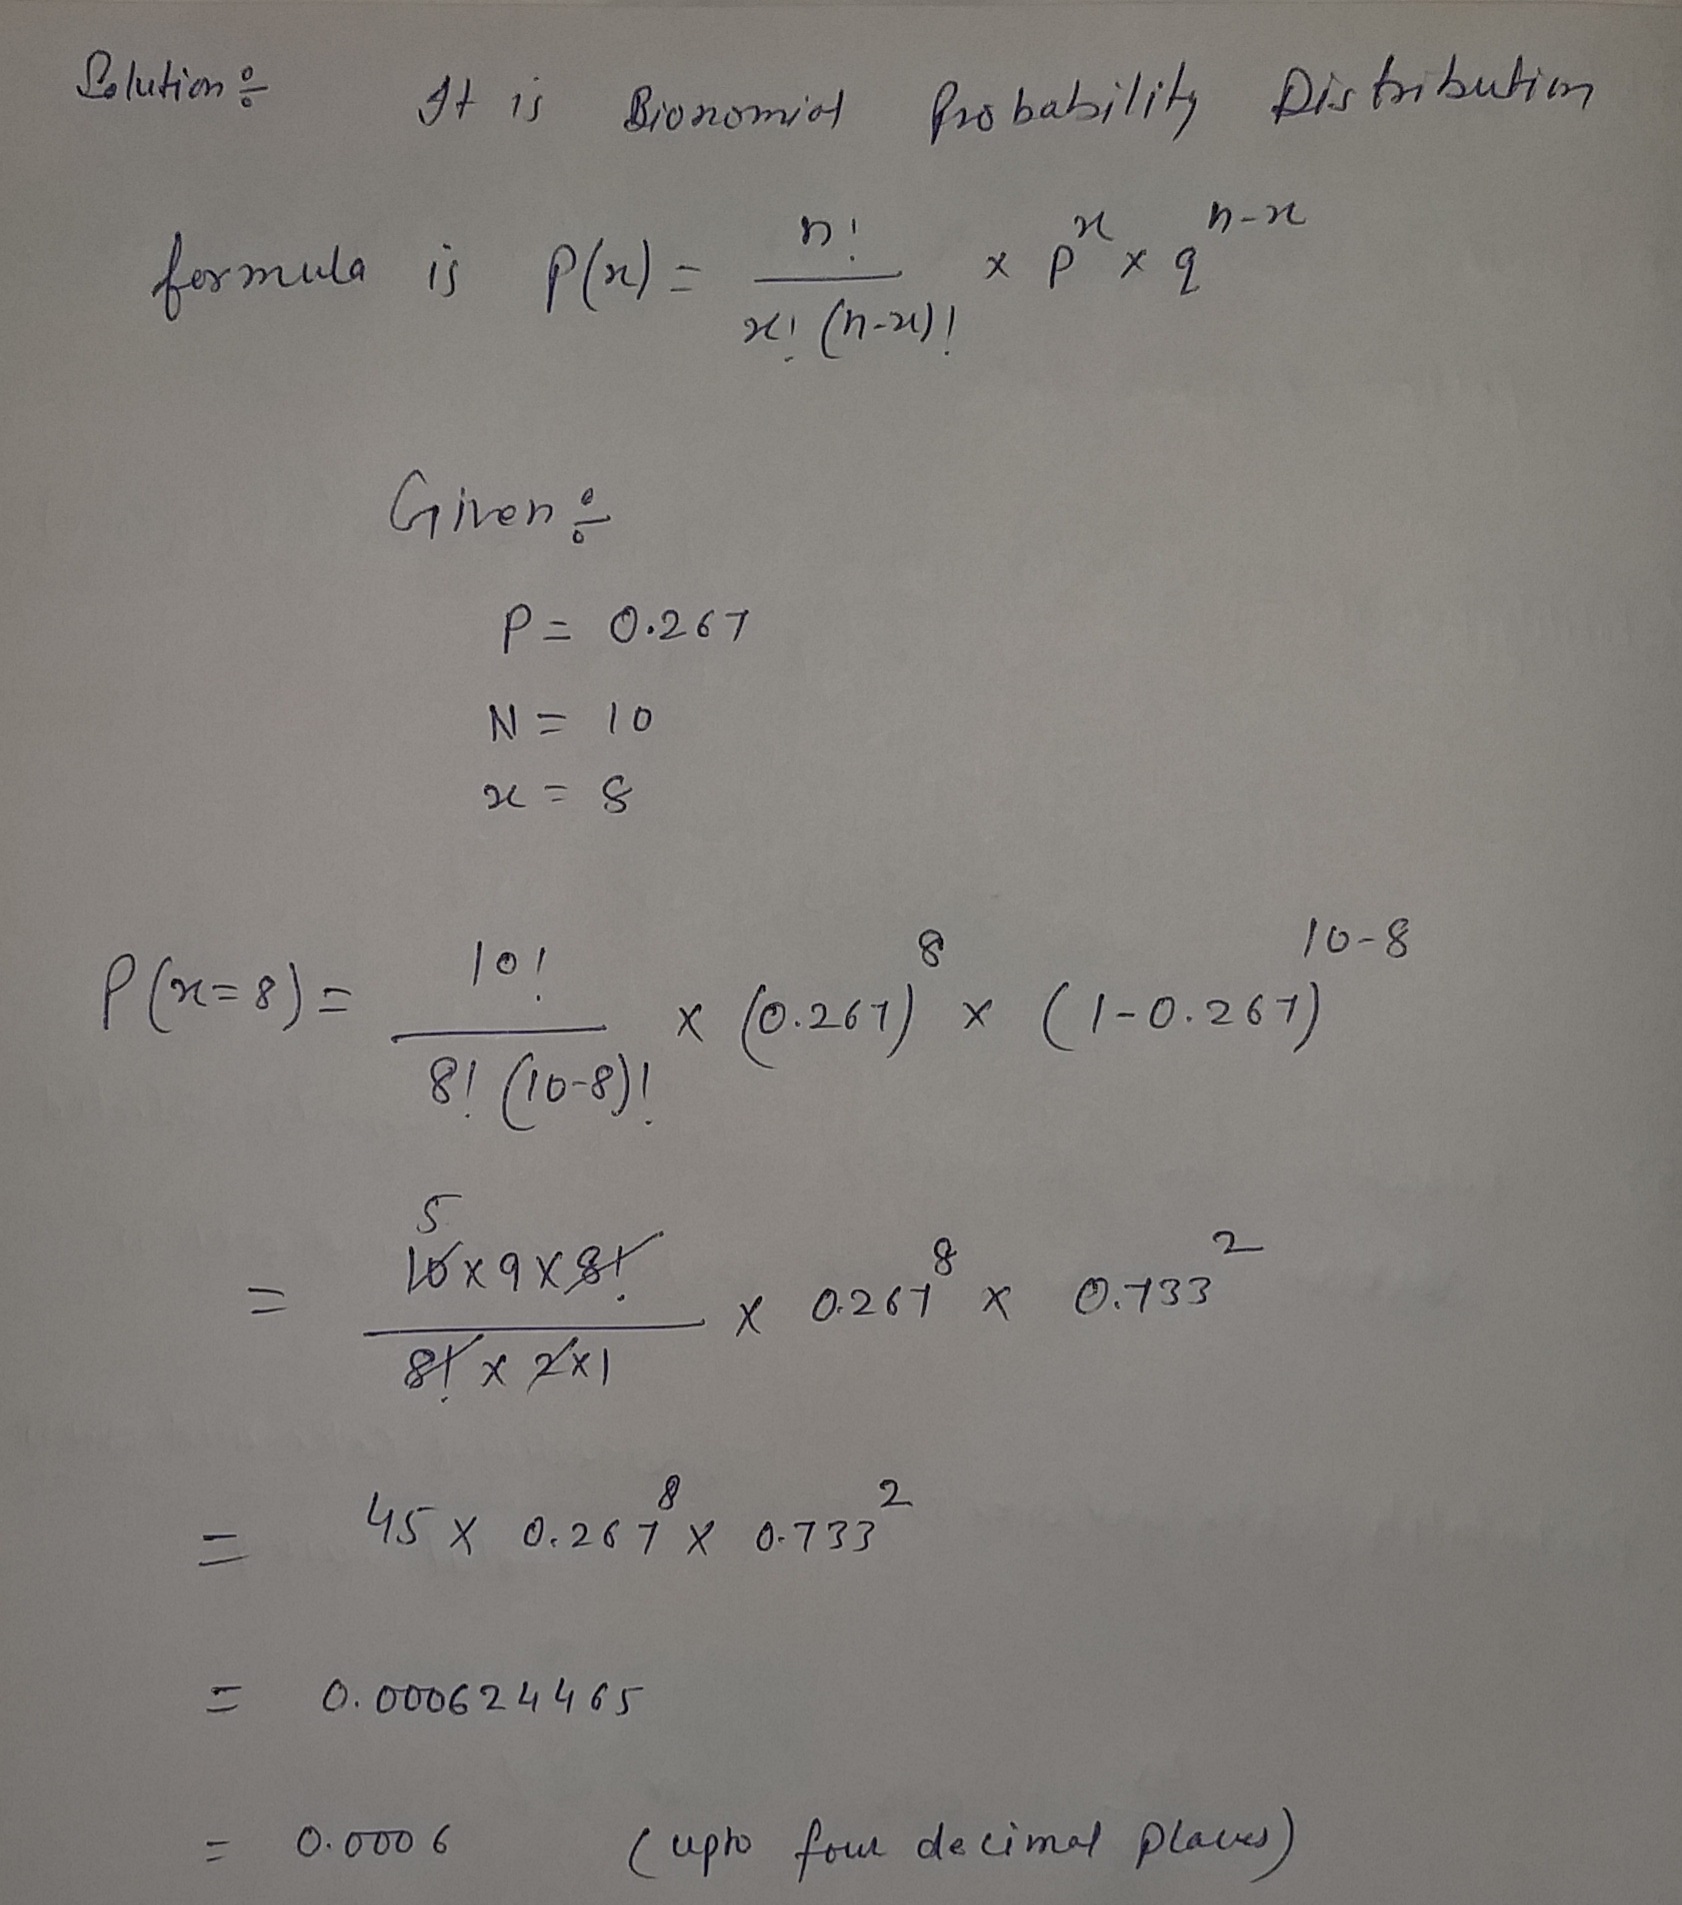 Solution ÷ It is Bionomial Probability Distribution
formula is P(x) = n! / x! (n-x)! × p^x × q^n-x
Given ÷
P = 0.267
N = 10
x = 8
P(x=8) = 10! / 8! (10-8)! × (0.267)^8 × (1-0.267)^10-8
5
= 10×9×8! / 8! × 2×1 × 0.267^8 × 0.733^2
= 45 × 0.267^8 × 0.733^2
= 0.000624465
= 0.0006 (upto four decimal places)